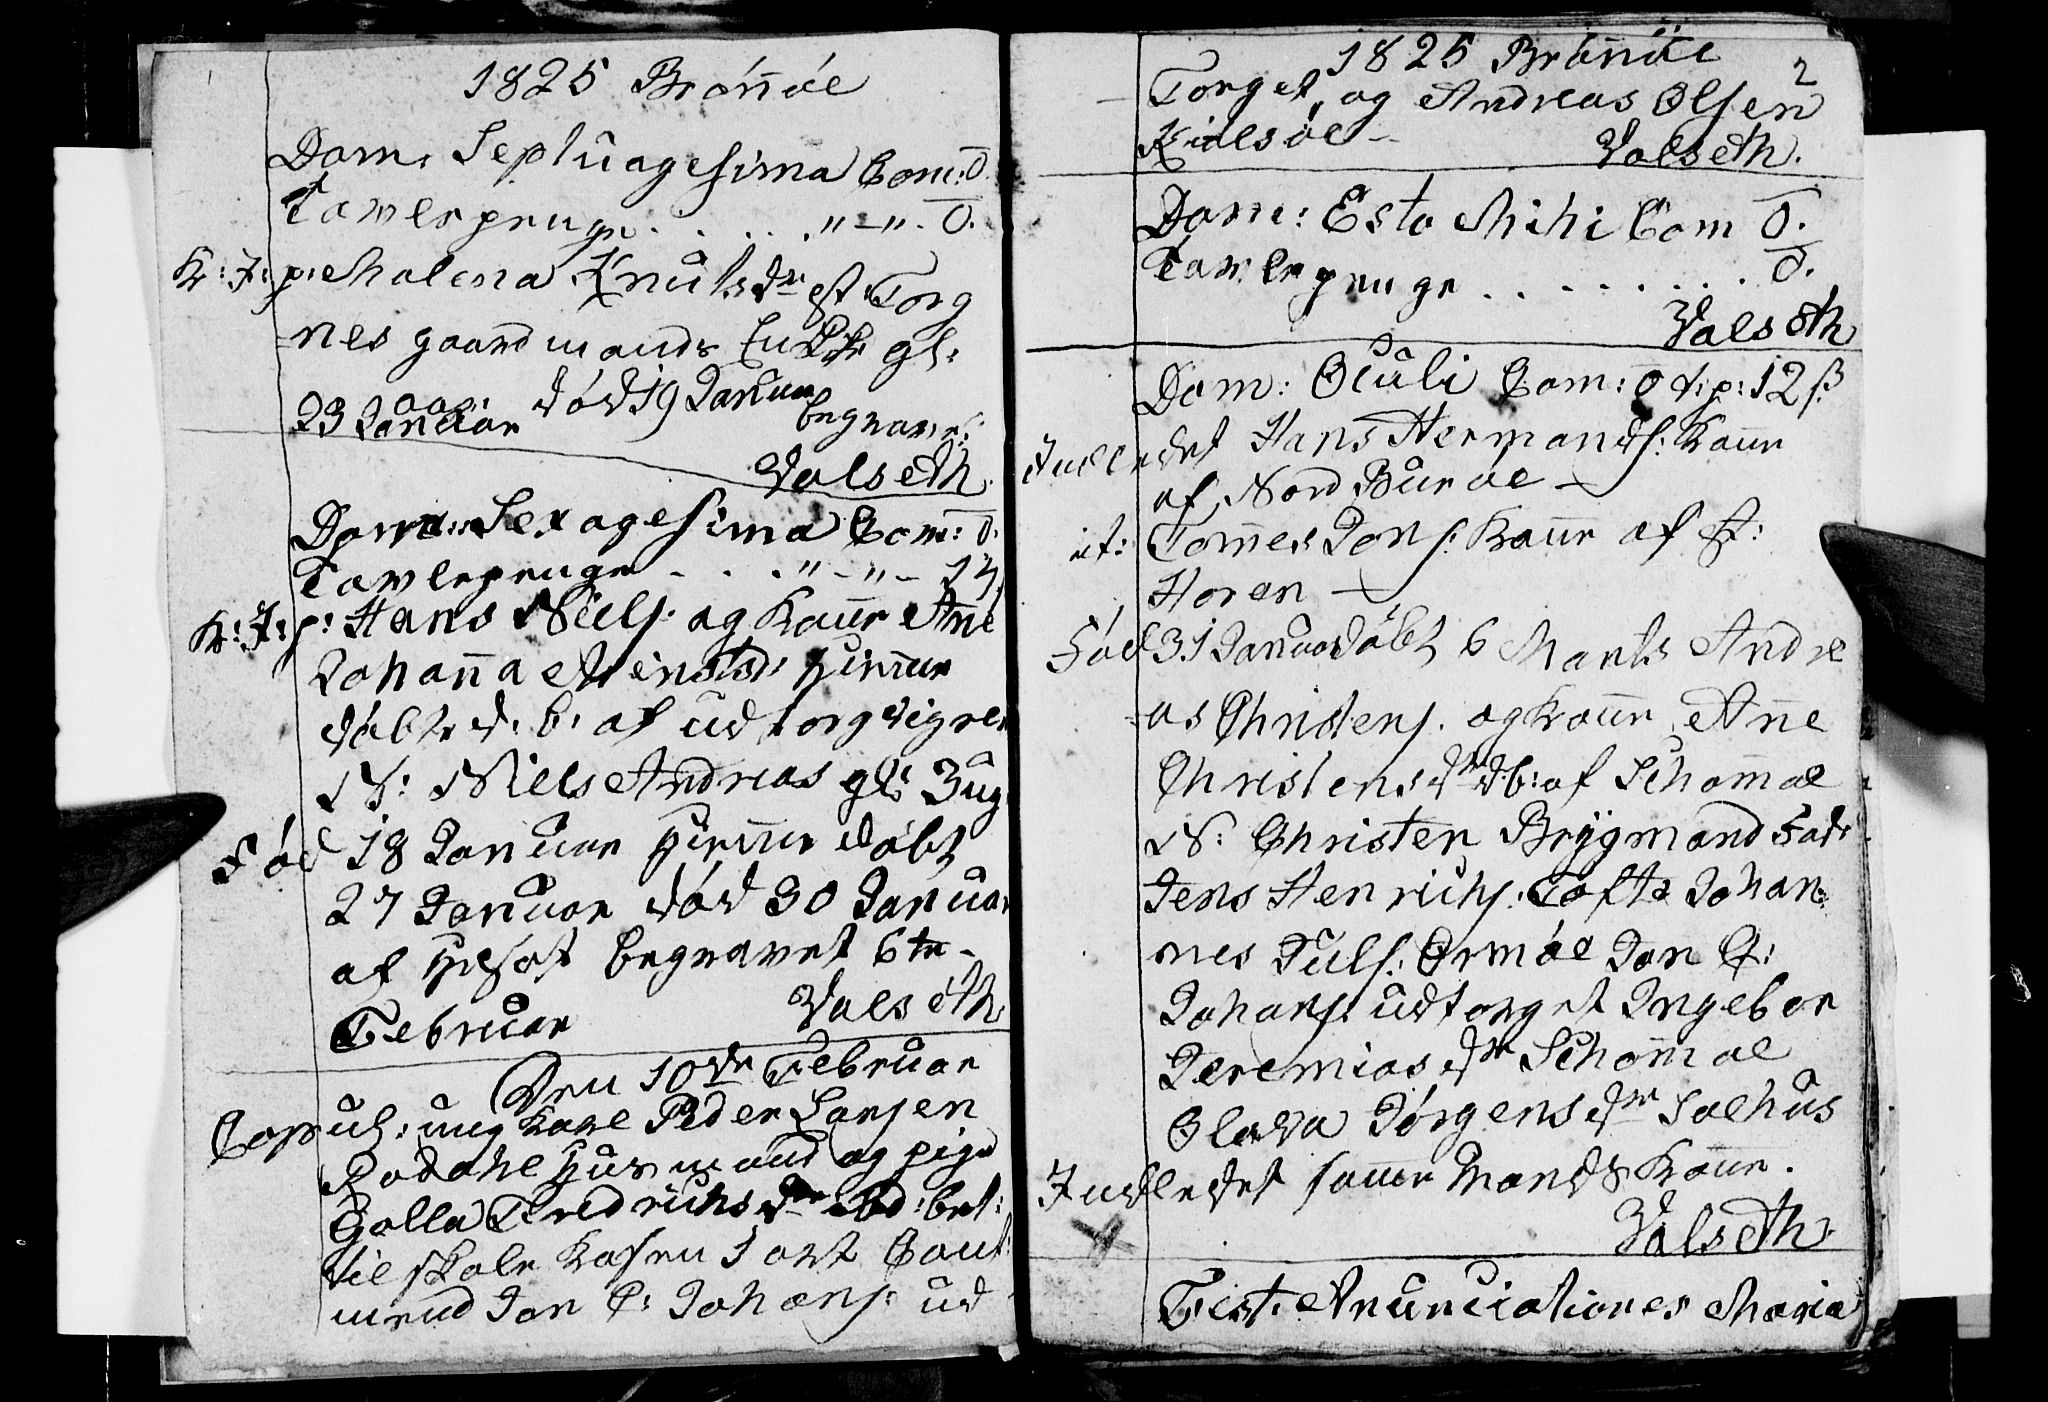 1825 Brönöe
Dom: Septuagesima Com: 0.
Tavlepenge . . . . „ – „ . 0.
K: J: p: Malena Knutsdr af Torg
nes gaardmands Enke gl:
aar. død 19 Januar
23 Januar begravet
Valseth
Dom: Sexagesima Com: 0.
Tavlepenge - . . „ – „ – 14
K: J: p: Hans Niels: og Kone Ane
Johanna hiemme
døbte d: b: af udtorgvigen
N: Niels Andreas gl: 3 ug
Fød 18 Januar hiemme døbt
27 Januar død 30 Januar
af begravet 6te –
Februar Valseth
Den 10de Februar
Copul: ung Karl Peder Larsen
husmand og pige
Golla Fredrichsdr ibd: bet:
til skole Kasen 1 ort Caut:
mend Jon C: Johans: ud
1825 Brönöe
2
Torget, og Andreas Olsen
Kielsöe –
Valseth.
Dom: Esto Mihi Com 0.
Tavlepenge . . . . . . . 0.
Valseth
Dom: Oculi Com: 0 t: p: 12 ß
Indledet Hans Hermands: Kone
af Nord Buröe –
it: Tomes Jons: Kone af St:
Horen –
Fød 31 Januar døbt 6 Marts Andre
as Christens: og Kone Ane
Christensdr d b: af Schomoe
N: Christen Brygmand Fad:
Jens Henrichs: Tofte Johan
nes Juls: Ormøe Jon C:
Johans: udtorget Ingebor
Jeremiasdr Schomoe
Olava Jörgensdr Solhus
Indledet same Mands Kone.
Valseth
Fest: Anunciationes Maria